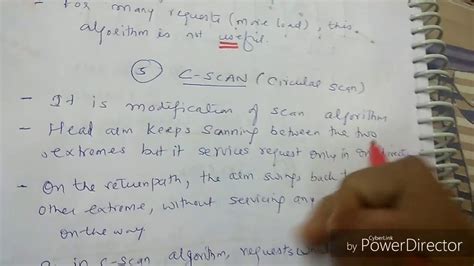 - For many requests (more load), this
algorithm is not useful.
5 C-SCAN (Circular Scan)
- It is modification of scan algorithm
- Head arm keeps scanning between the two
extremes but it services request only in
- On the return path, the arm swings back
other extreme, without servicing any
on the way
in C-Scan algorithm, requests
CyberLink
by PowerDirector